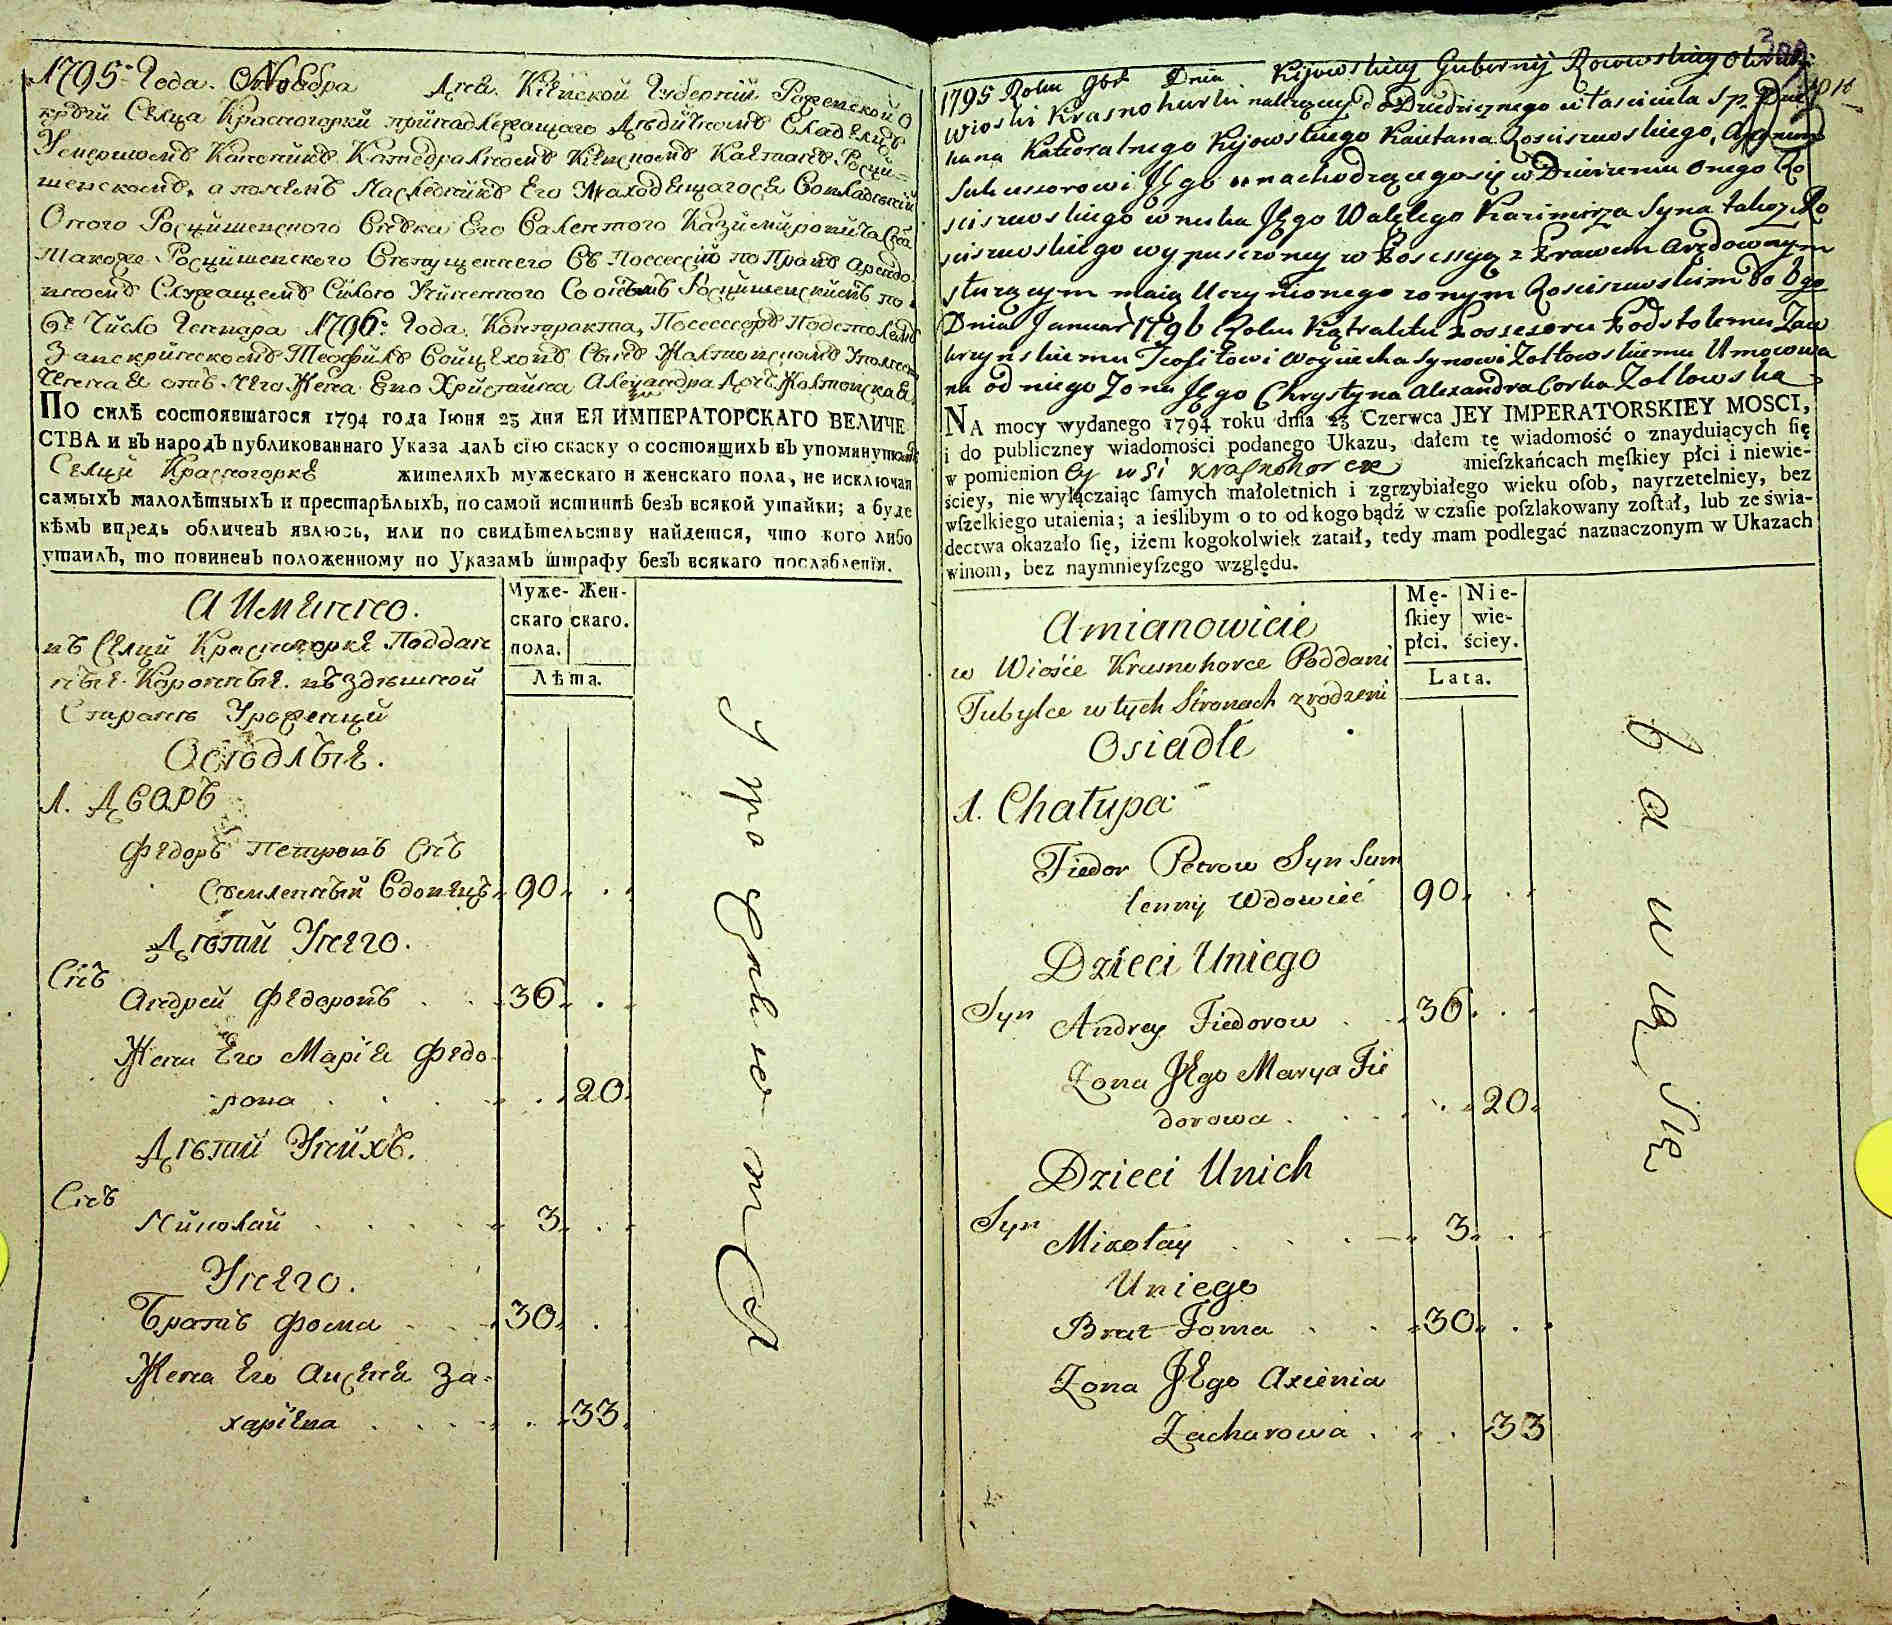 1795: Года. Ноября Дня. Кіевской Губерніи Радомской О
круги Селца Красногорки принадлежащаго Дѣдичномъ Владелцъ
Умершомъ Каноникъ Катедралномъ Кіевскомъ Каетанъ Росци-
шевскомъ, а понемъ Наследникъ Его Находящагося Вовладѣніи
Оного Росцишевского Внѣка Его Валентого Казимировича
также Росцишевского Выпущенного Въ Поссессію по Правѣ Арендо
вномъ Служащемъ Силою Учиненного Со онымъ Росцишевскимъ по
6е Число Генвара 1796: Года. Контракта, Поссессоръ Подстолемъ
Теофилъ Войцеховъ Сынъ Жолтовскомъ
Жена Его Христина Александра Дочь Жолтовская
ПО силѣ состоявшагося 1794 года Іюня 23 дня ЕЯ ИМПЕРАТОРСКАГО ВЕЛИЧЕ
СТВА и въ народъ публикованнаго Указа далъ сію скаску о состоящихъ въ упомянутомъ
Селци Красногоркѣ жителяхъ мужескаго и женскаго пола, не исключая
самыхъ малолѣтныхъ и престарѣлыхъ, по самой истиннѣ безъ всякой утайки; а буде
кѣмъ впредь обличенъ явлюсь, или по свидѣтельству найдется, что кого либо
утаилъ, то повиненъ положенному по Указамъ штрафу безъ всякаго послабленія.
А Имянно.
въ Селци Красногоркѣ Поддан
ныя Коронныя въздѣшной
Сторонѣ Уроженци
Осѣдлыя.
Муже- Жен-
скаго скаго.
пола.
Лѣта.
1. ДВОРЪ
Федоръ Петровъ Снъ
Съмленный Вдовецъ 90
Дѣти Унего.
Снъ
Андрей Федоровъ 36
Жена Его Маріа Федо
рова 20
Дѣти Унихъ.
Снъ
Николай 3
Унего.
Братъ Фома 30
Жена Его Аксеня За-
харіева 33
1795 Roku 9br Dnia Kijowskiey Gubernij Okruhi
Wioski Krasnohurki należącey do Dziedzicznego własciciela S.p.
nana Katedralnego Kijowskiego Kaietana Rosciszewskiego, a
Sukcessorowi Jego nachodzącegosię w Dzierzeniu onego Ro
sciszewskiego wnuka Jego Walętego Kazimirza Syna takoż Ro
sciszewskiego wypuszczoney w Possessyą z Prawem Arędownym
służącym maią Uczynionego z onym Rosciszewskim do 6go
Dnia Januar 1796 Roku Kątraktu Possesoru Podstolemu
Teofilowi Woyciecha Synowi Zołtowskiemu Umocowa
na od niego Zona Jego Chrystyna Alexandra Corka Zołtowska
NA mocy wydanego 1794 roku dnia 23 Czerwca JEY IMPERATORSKIEY MOSCI,
i do publiczney wiadomości podanego Ukazu, dałem tę wiadomość o znayduiących ſię
w pomienion ey wsi Krasnohorce mieſzkańcach męſkiey płci i niewie-
ściey, nie wyłączaiąc ſamych małoletnich i zgrzybiałego wieku oſob, nayrzetelniey, bez
wſzelkiego utaienia; a ieślibym o to od kogo bądź w czaſie poſzlakowany zoſtał, lub ze świa-
dectwa okazało ſię, iżem kogokolwiek zataił, tedy mam podlegać naznaczonym w Ukazach
winom, bez naymnieyſzego względu.
Amianowicie
w Wiośie Krasnohorce Poddani
Tubylce w tych Stronach zrodzeni
Osiadłe
Mę- Nie-
ſkiey wie-
płci. ściey.
Lata.
1. Chałupa
Fiedor Petrow Syn Sum
lenny Wdowieć 90
Dzieci Uniego
Syn Andrey Fiedorow 36
Zona JEgo Marya Fie
dorowa 20
Dzieci Unich
Syn
Mikołay 3
Uniego
Brat Foma 30
Zona JEgo Axienia
Zacharowa 33